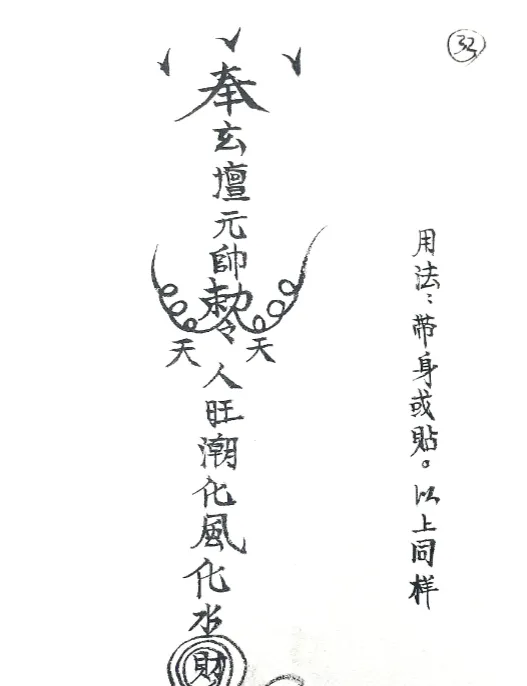 33
奉玄壇元帥勅令
天 天
人旺潮化風化水
財
用法：带身或貼。以上同样